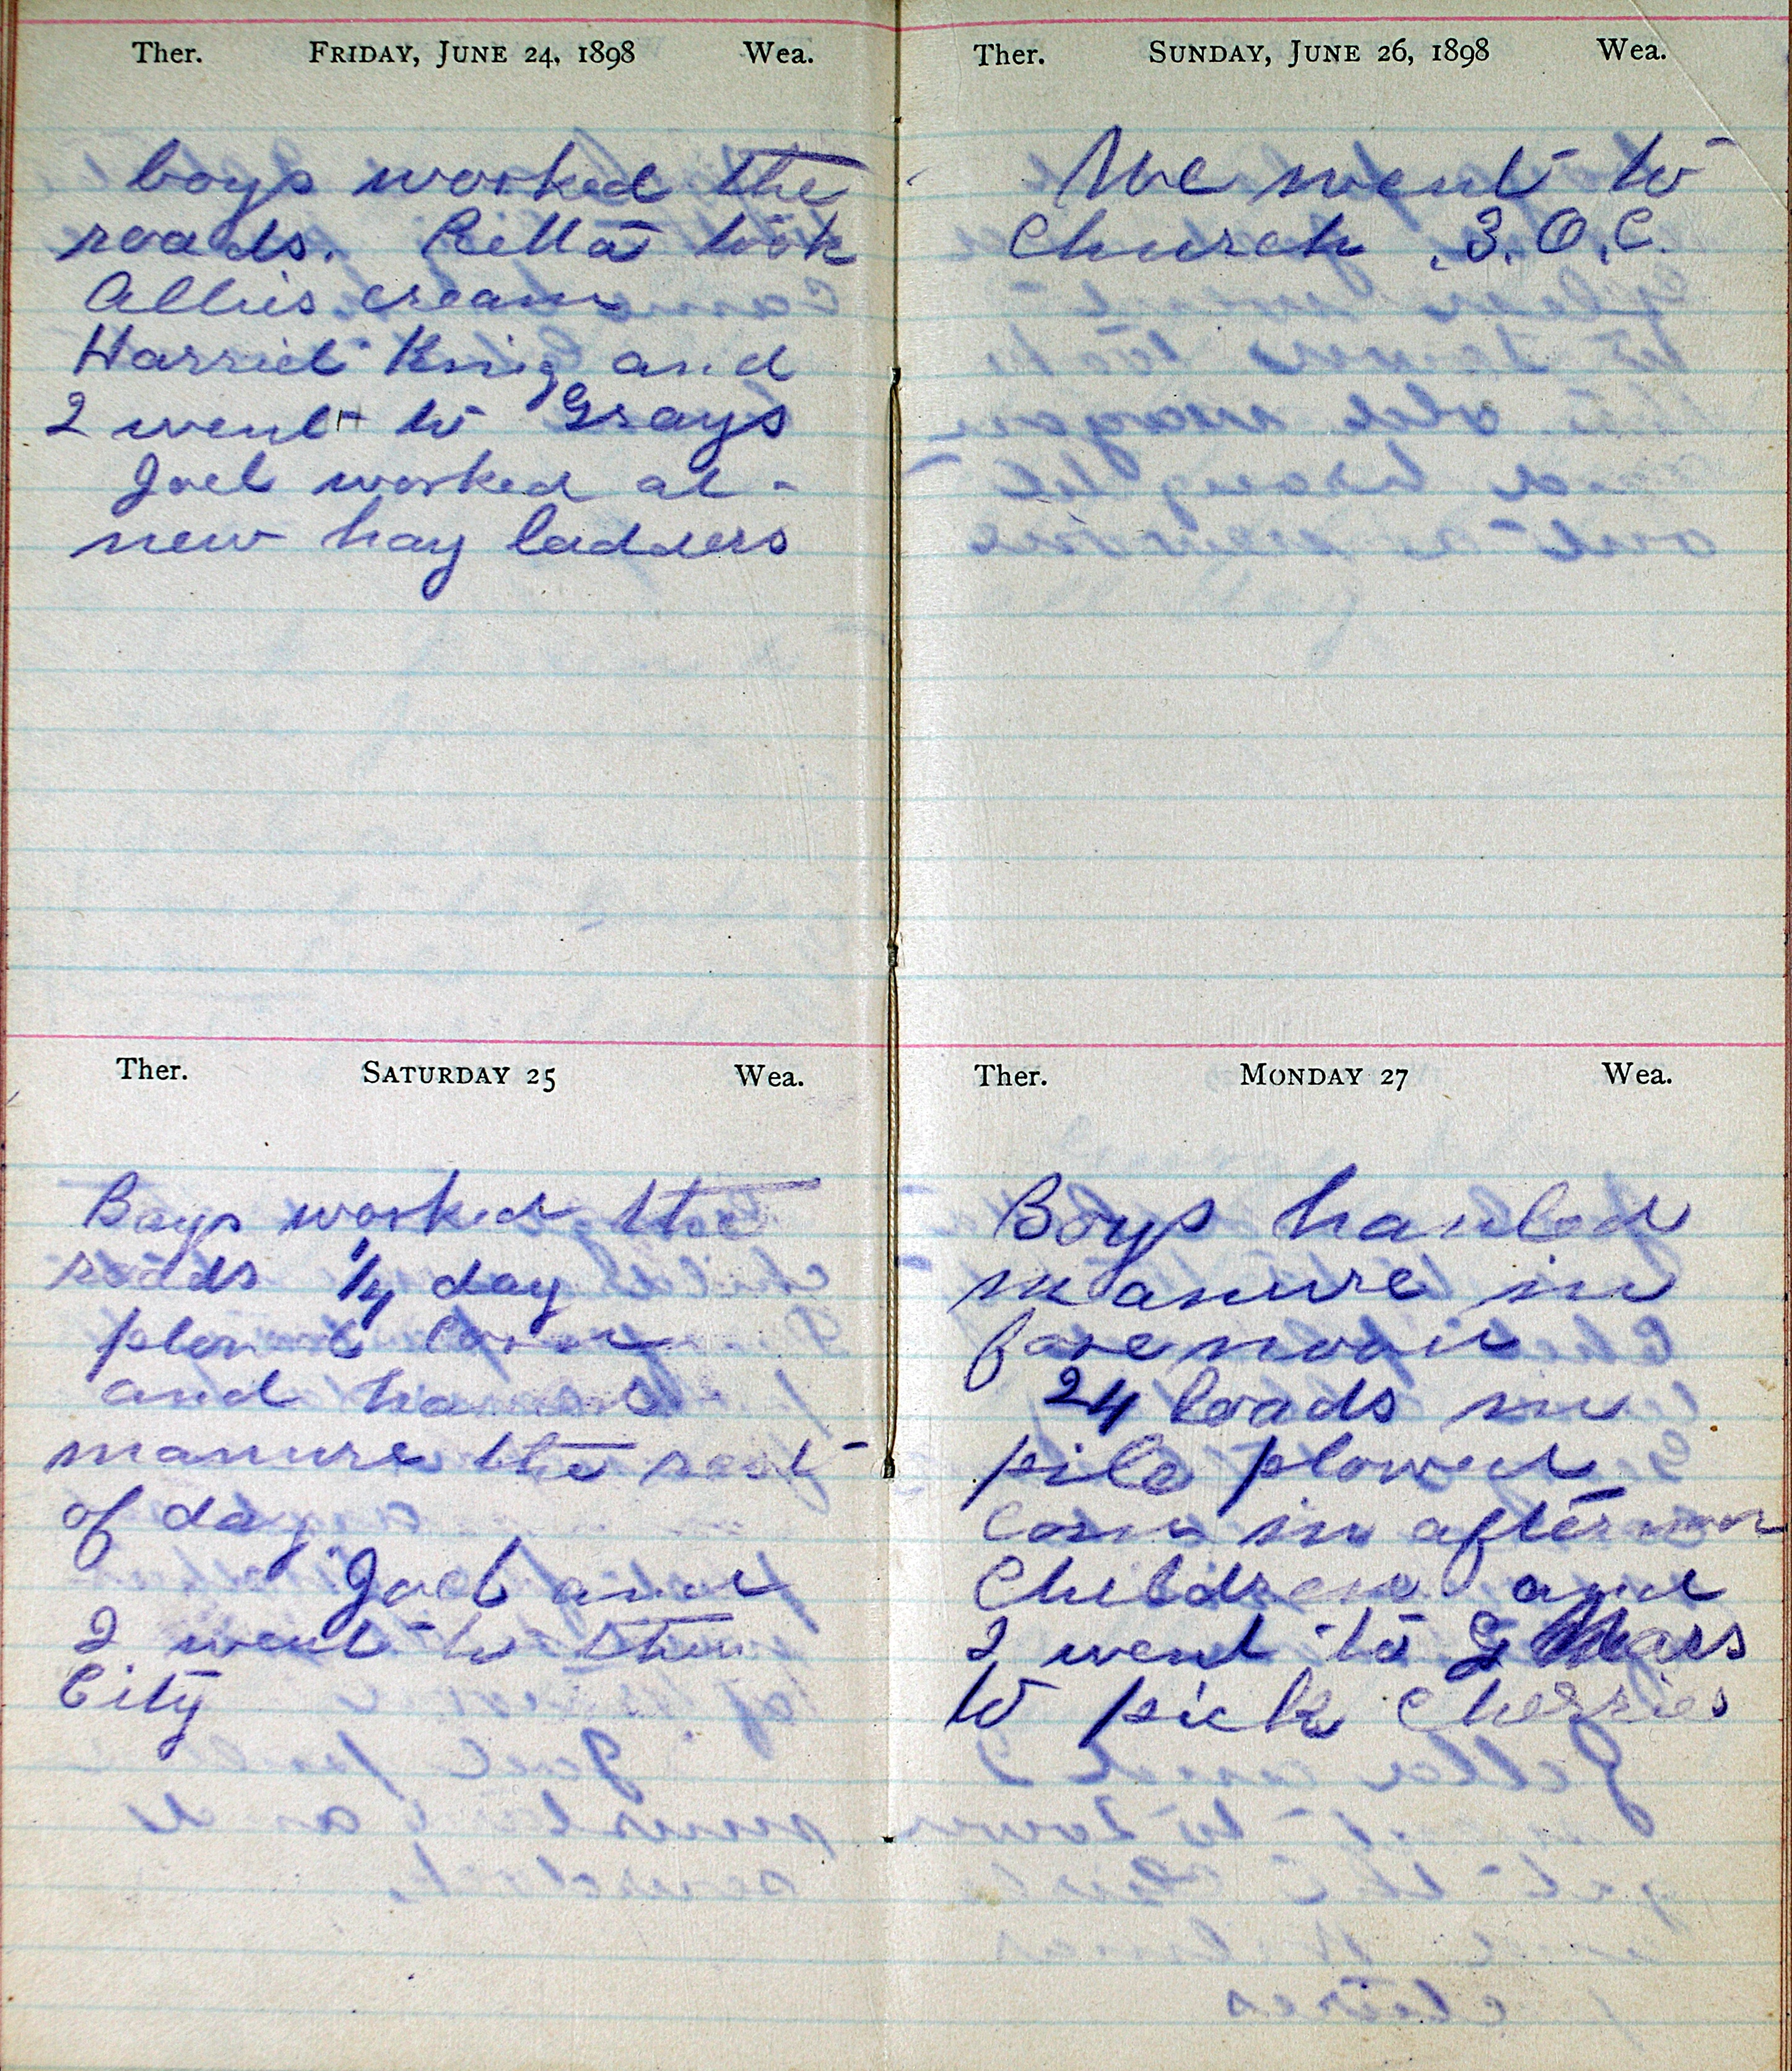 Ther. FRIDAY, JUNE 24, 1898 Wea.
boys worked the
roads. Rilla took
Allies cream
Harriet King and
I went to Grays
Joel worked at
new hay ladders
Ther. SATURDAY 25 Wea.
Boys worked the
roads 1/4 day
corn
and
manure the rest
of day
Joel and
I went to the
City
Ther. SUNDAY, JUNE 26, 1898 Wea.
We went to
Church . S. O. C.
Ther. MONDAY 27 Wea.
Boys hauled
manure in
forenoon
24 loads in
pile plowed
corn in afternoon
Children and
I went to G
to pick cherries